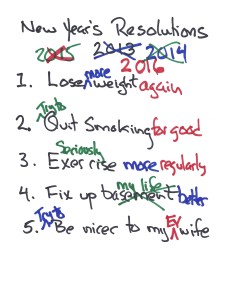 New Year's Resolutions
2015 2013 2014
2016
1. Lose more weight again
2. Try to Quit Smoking for good
3. Seriously Exercise more regularly
4. Fix up basement my life better
5. Try to Be nicer to my Ex wife